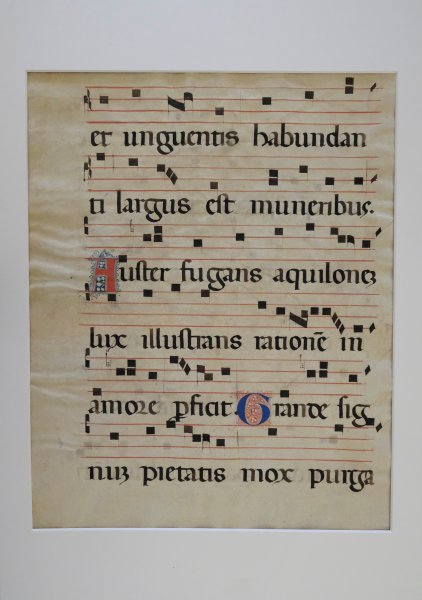 et unguentis habundan
ti largus est muneribus.
Auster fugans aquilonez
lux illustrans rationē in
amore pficit. Grande sig
nuz pietatis mox purga